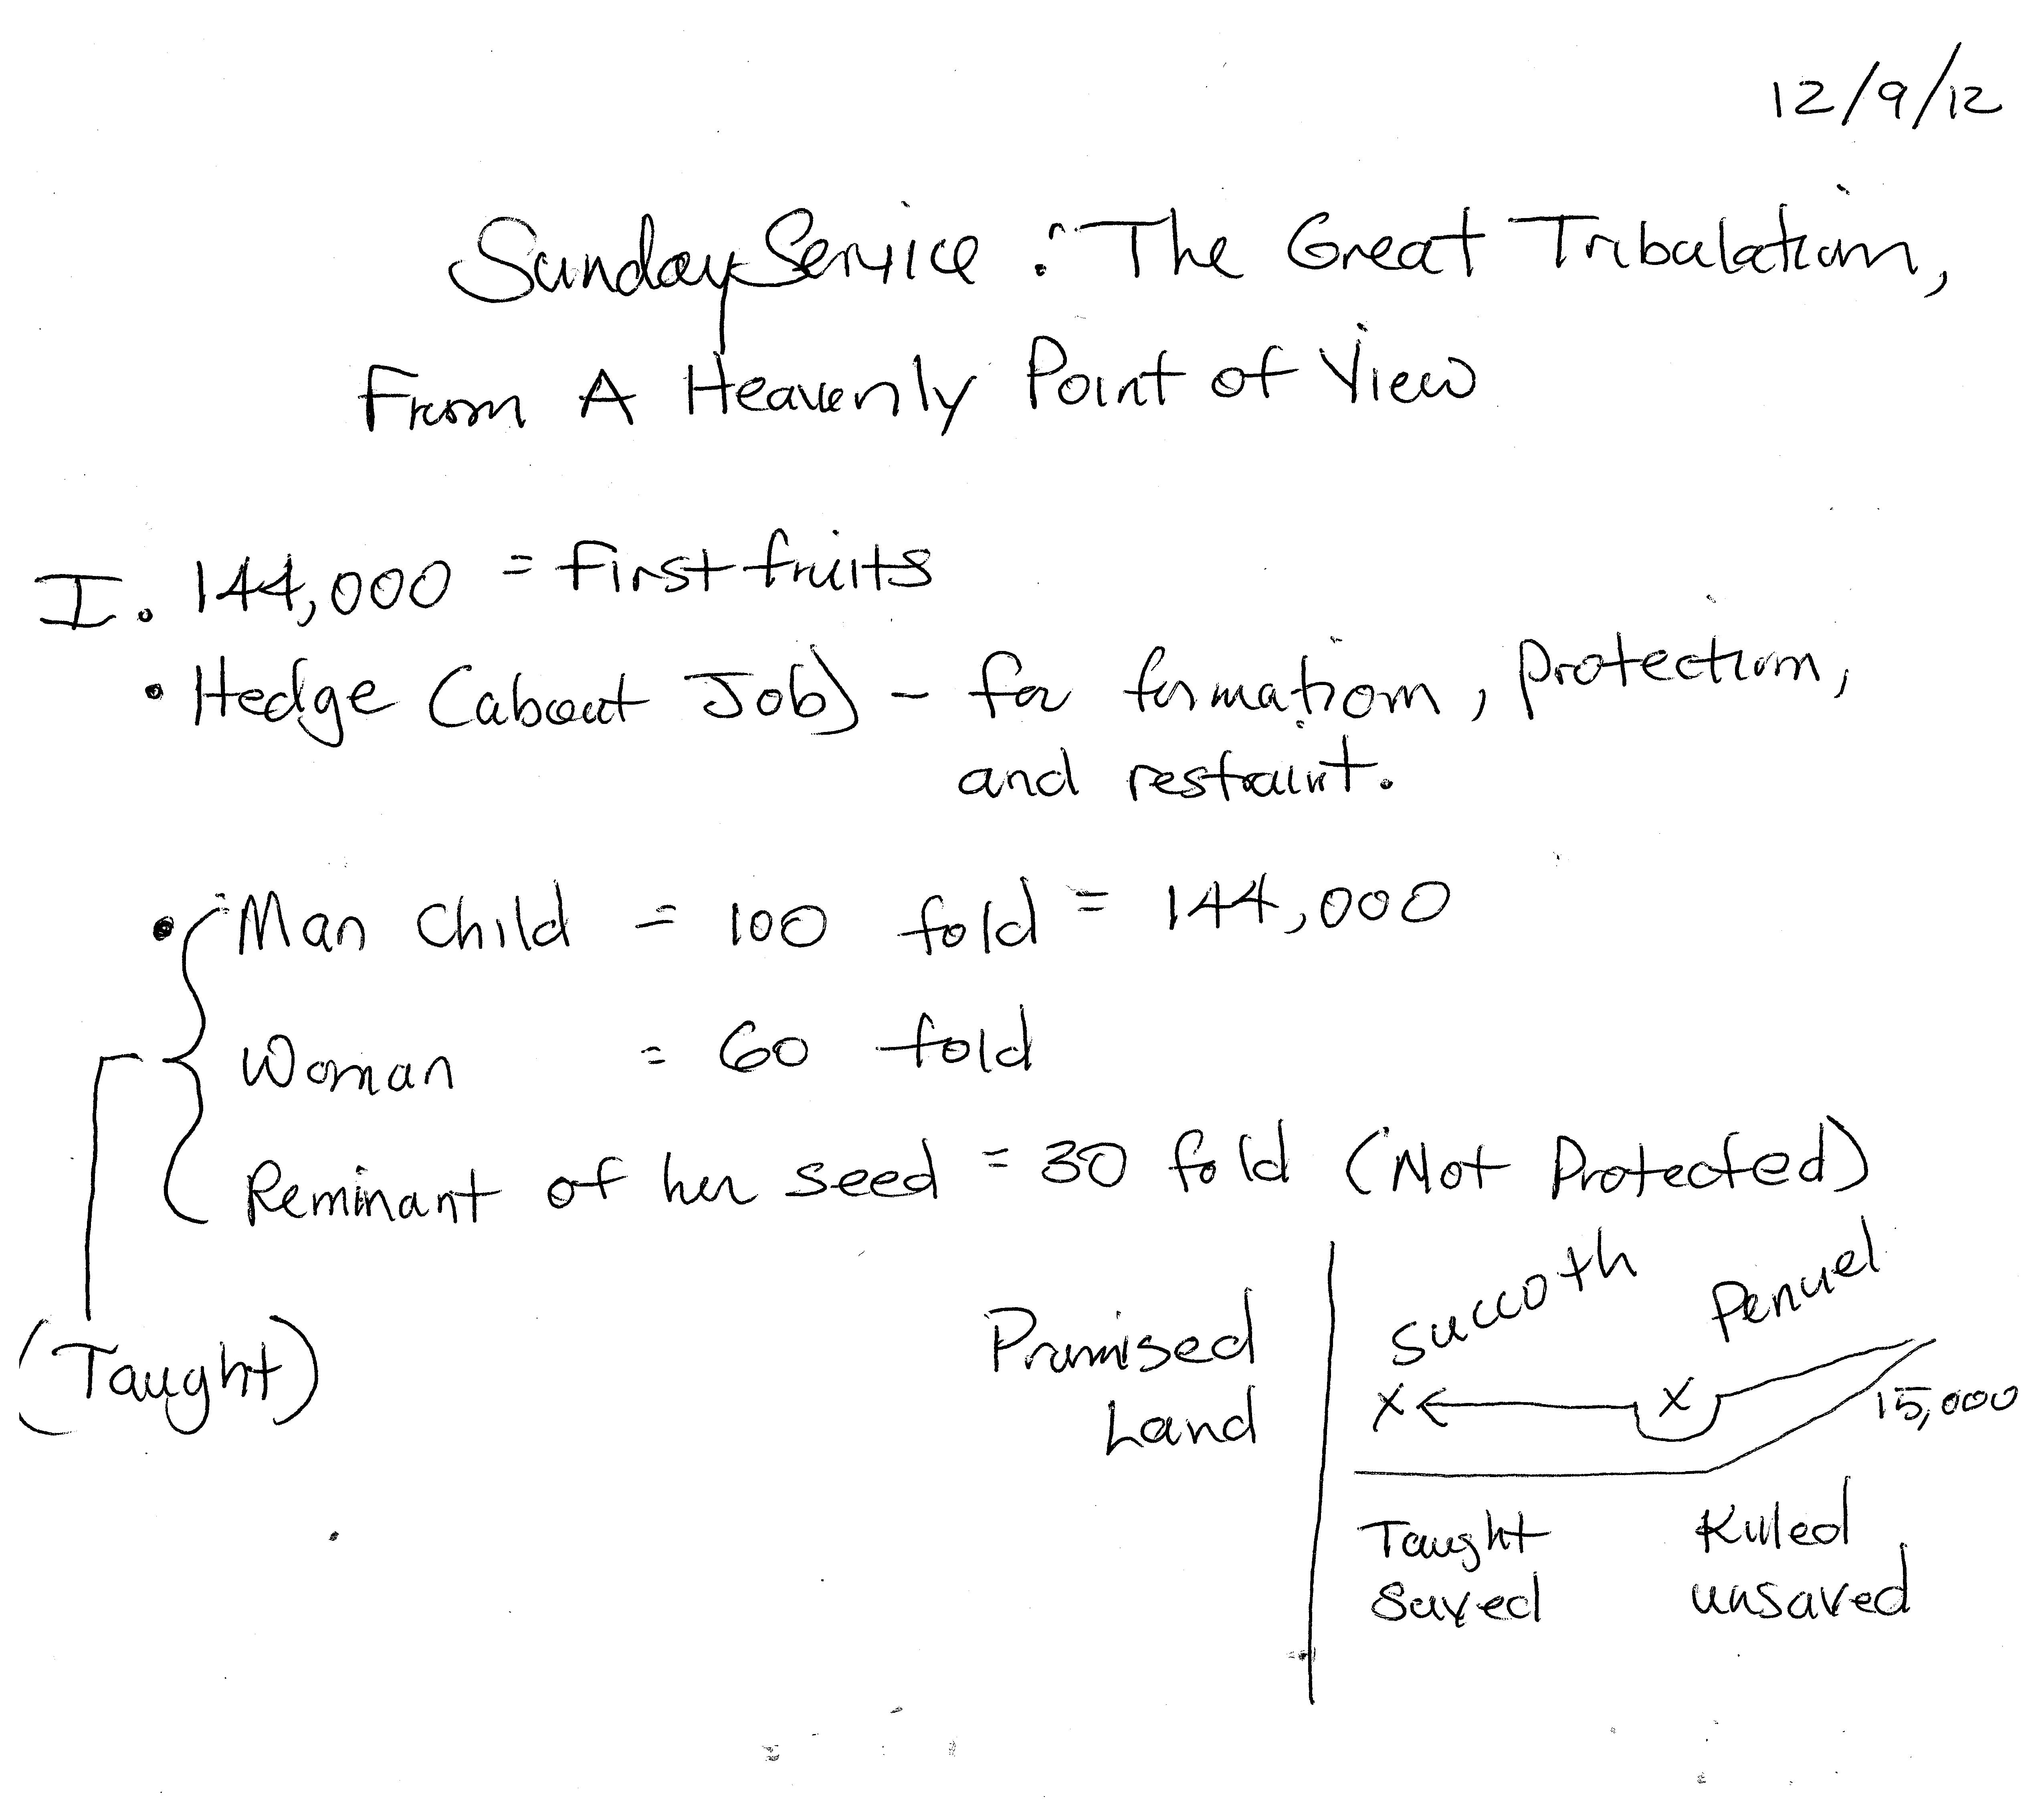 12/9/12
Sunday Service : The Great Tribulation,
From A Heavenly Point of View
I. 144,000 = firstfruits
• Hedge (about Job) - for formation, protection,
and restraint.
• Man Child = 100 fold = 144,000
Woman = 60 fold
Reminant of her seed = 30 fold (Not Protected)
(Taught)
Promised
Land
Succoth Penuel
X X
15,000
Taught Killed
Saved unsaved